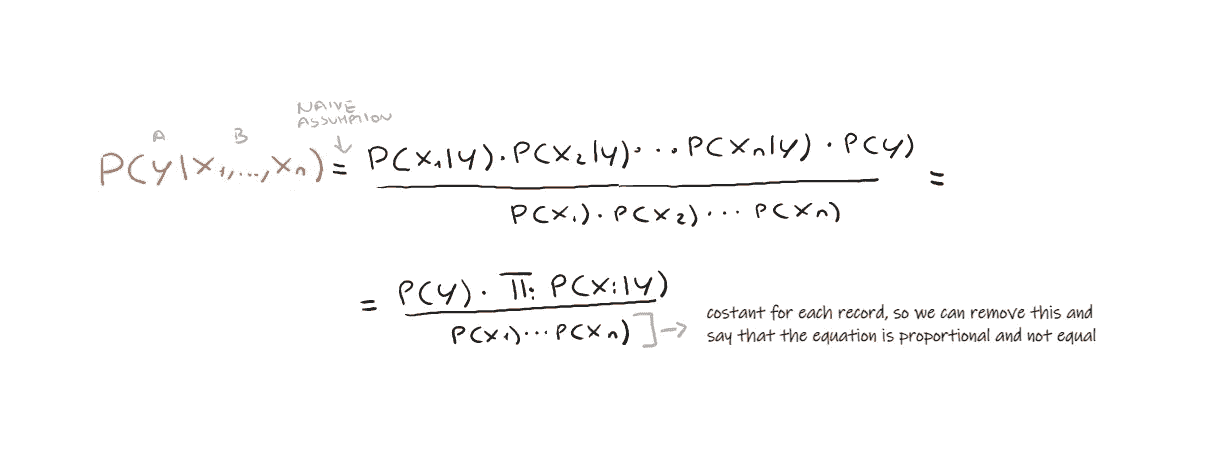 NAIVE
ASSUMPTION
A B
P(y|x₁,...,xₙ) = P(x₁|y)·P(x₂|y)···P(xₙ|y)·P(y)
P(x₁)·P(x₂)···P(xₙ) =
= P(y)·Πᵢ P(xᵢ|y)
P(x₁)···P(xₙ)
costant for each record, so we can remove this and
say that the equation is proportional and not equal